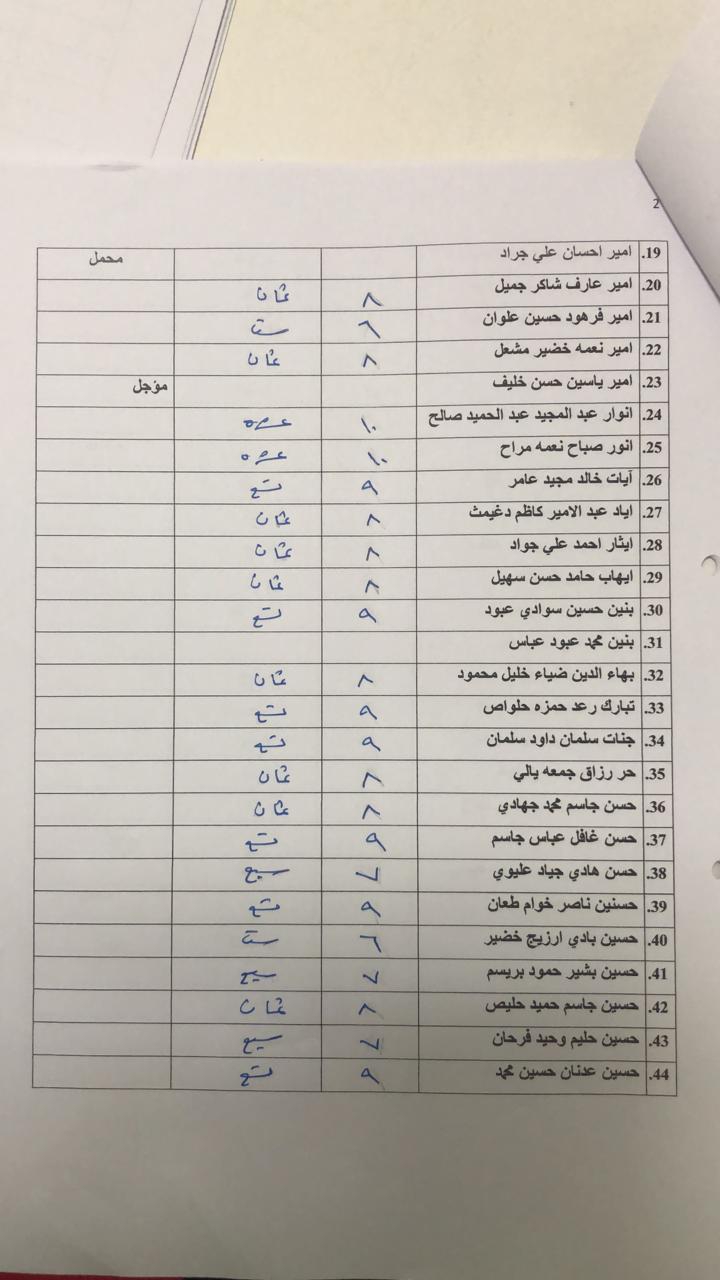 2
.19 امير احسان علي جراد محمل
.20 امير عارف شاكر جميل ٨ ثمان
.21 امير فرهود حسين علوان ٦ ست
.22 امير نعمه خضير مشعل ٨ ثمان
.23 امير ياسين حسن خليف مؤجل
.24 انوار عبد المجيد عبد الحميد صالح ١٠ عشره
.25 انور صباح نعمه مراح ١٠ عشره
.26 آيات خالد مجيد عامر ٩ تسع
.27 اياد عبد الامير كاظم دغيمث ٨ ثمان
.28 ايثار احمد علي جواد ٨ ثمان
.29 ايهاب حامد حسن سهيل ٨ ثمان
.30 بنين حسين سوادي عبود ٩ تسع
.31 بنين محمد عبود عباس
.32 بهاء الدين ضياء خليل محمود ٨ ثمان
.33 تبارك رعد حمزه حلواص ٩ تسع
.34 جنات سلمان داود سلمان ٩ تسع
.35 حر رزاق جمعه يالي ٨ ثمان
.36 حسن جاسم محمد جهادي ٨ ثمان
.37 حسن غافل عباس جاسم ٩ تسع
.38 حسن هادي جياد عليوي ٧ سبع
.39 حسنين ناصر خوام طعان ٩ تسع
.40 حسين بادي ارزيج خضير ٦ ست
.41 حسين بشير حمود بريسم ٧ سبع
.42 حسين جاسم حميد حليص ٨ ثمان
.43 حسين حليم وحيد فرحان ٧ سبع
.44 حسين عدنان حسين محمد ٩ تسع